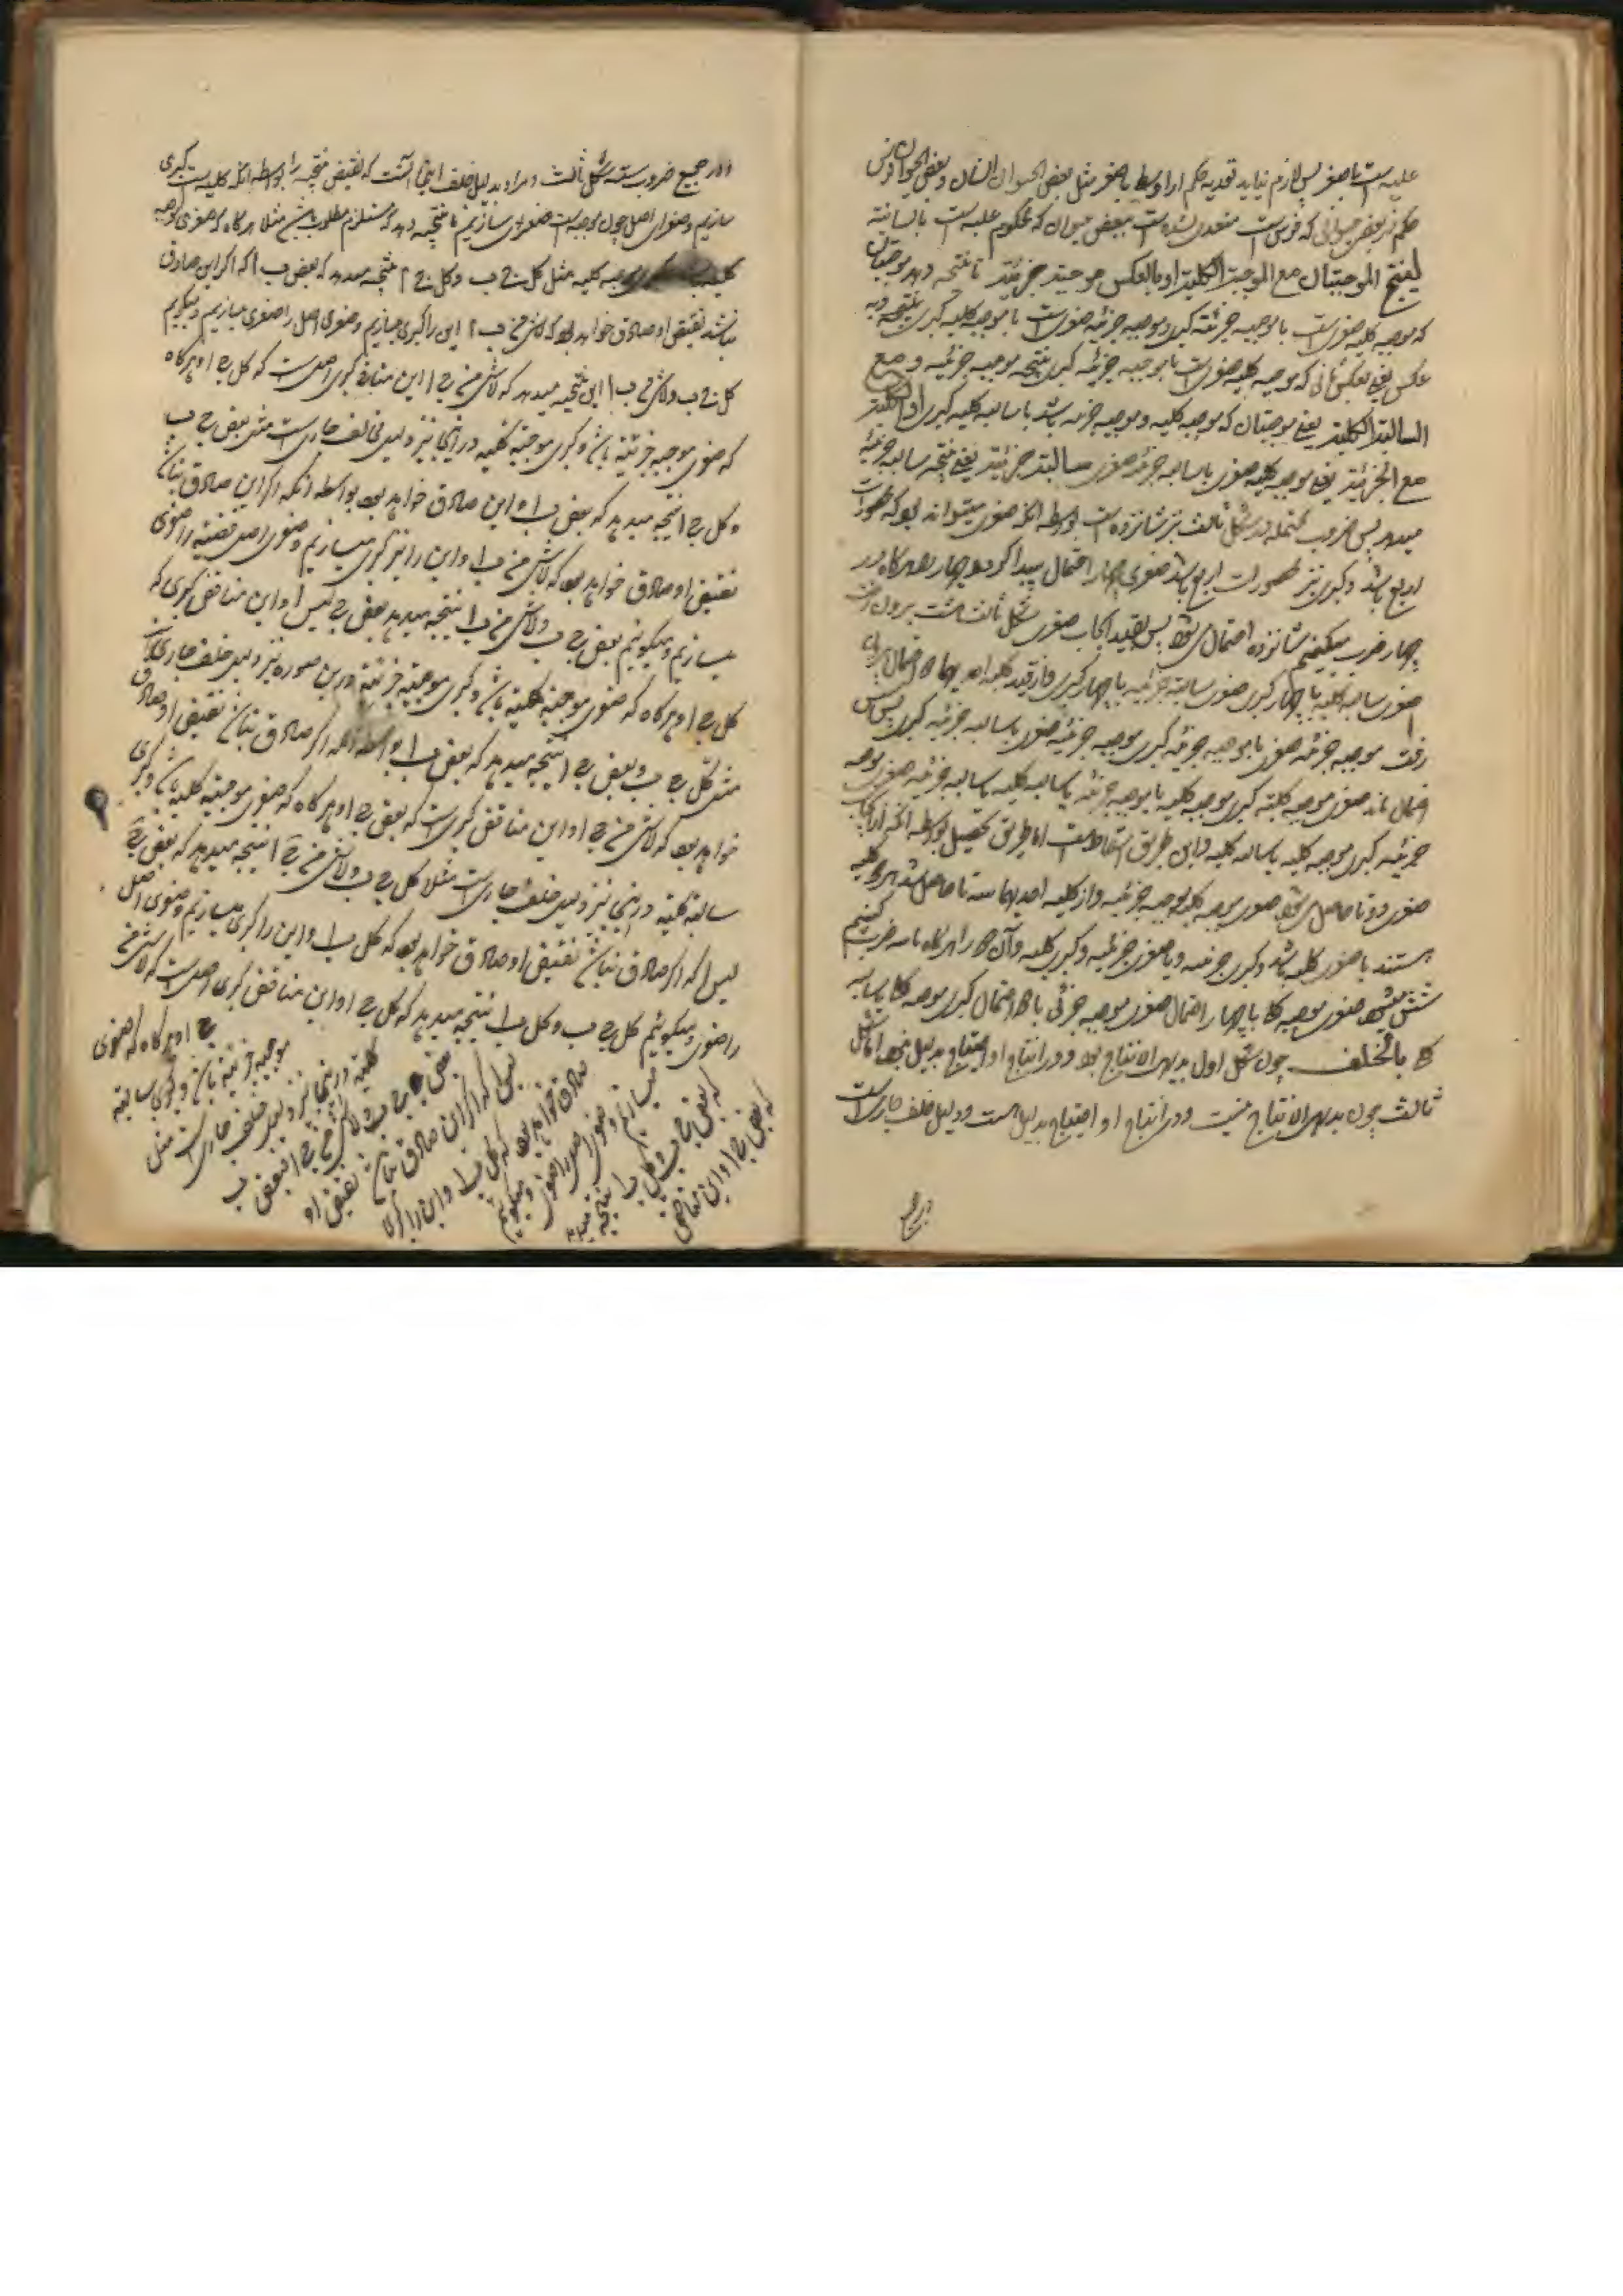 علیه است باصغر پس لازم نیاید تعدیه حکم از اوسط باصغر مثل بعض الحیوان انسان و بعض الحیوان فرس
حکم در بعض حیوانی که فرس است متعدی نشده است ببعض حیوان که محکوم علیه است بانسانیة
لینتج الموجبتان مع الموجبة الکلیة او بالعکس موجبة جزئیة تا نتیجه دهد موجبتان
که موجبه کلیه صغری است با موجبه جزئیه کبری و موجبه جزئیه صغری است با موجبه کلیه کبری نتیجه
عکس یعنی بعکس ثانی که موجبه کلیه صغری است با موجبه جزئیه کبری نتیجه موجبه جزئیه و مع
السالبة الکلیة یعنی موجبتان که موجبه کلیه و موجبه جزئیه باشد با سالبه کلیه کبری او الکلیة
مع الجزئیة یعنی موجبه کلیه صغری با سالبه جزئیه سالبة جزئیة یعنی نتیجه سالبه جزئیة
میدهد پس ضروب محتمله در شکل ثالث نیز شانزده است بواسطه انکه صغری میتواند بود که محصورات
اربع باشد و کبری نیز محصورات اربع باشد صغری چهار احتمال پیدا کرد و چهار هرگاه در
چهار ضرب میکنیم شانزده احتمال میشود پس بقید ایجاب صغری شکل ثالث هشت بیرون رفت
صغری سالبه کلیه با چهار کبری صغری سالبه جزئیه با چهار کبری و از قید کلیه احدیهما دو احتمال
رفت موجبه جزئیه صغری با موجبه جزئیه کبری موجبه جزئیه صغری با سالبه جزئیه کبری پس شش
احتمال ماند صغری موجبه کلیه کبری موجبه کلیه یا موجبه جزئیه یا سالبه کلیه یا سالبه جزئیه صغری موجبه
جزئیه کبری موجبه کلیه یا سالبه کلیه و این طریق اسقاط است اما طریق تحصیل بواسطه انکه از ایجاب
صغری دو تا حاصل میشود صغری موجبه کلیه موجبه جزئیه و از کلیه احدیهما سه تا حاصل شد هر دو کلیه
هستند یا صغری کلیه باشد و کبری جزئیه و یا صغری جزئیه و کبری کلیه و آن دو را هرگاه با سه ضرب کنیم
شش میشود صغری موجبه کلیه با چهار احتمال صغری موجبه جزئی با دو احتمال کبری موجبه کلیه یا سالبه
کلیه بالخلف چون شکل اول بدیهی الانتاج بود و در انتاج او احتیاج بدلیل نبود اما شکل
ثالث چون بدیهی الانتاج نیست و در انتاج او احتیاج بدلیل هست و دلیل خلف جاری است
در جمیع
در جمیع ضروب سته شکل ثالث و مراد بدلیل خلف اینجا آنست که نقیض نتیجه را بواسطه انکه کلیه است کبری
سازیم و صغرای اصل چون موجبه است صغری سازیم تا نتیجه دهد که مستلزم مطلوب باشد مثلا هرگاه که صغری موجبه
کلیه باشد و کبری موجبه کلیه مثل کل ج ب و کل ج ا نتیجه میدهد که بعض ب ا که اگر این صادق
نباشد نقیض او صادق خواهد بود که لاشئ من ب ا این را کبری میسازیم و صغری اصل را صغری میسازیم و میگوئیم
کل ج ب و لاشئ من ب ا این نتیجه میدهد که لاشئ من ج ا این منافی کبری اصل است که کل ج ا و هرگاه
که صغری موجبه جزئیه باشد و کبری موجبه کلیه در اینجا نیز دلیل خلف جاری است مثل بعض ج ب
و کل ج ا نتیجه میدهد که بعض ب ا و این صادق خواهد بود بواسطه آنکه اگر این صادق نباشد
نقیض او صادق خواهد بود که لاشئ من ب ا و این را نیز کبری میسازیم و صغری اصل قضیه را صغری
میسازیم و میگوئیم بعض ج ب و لاشئ من ب ا نتیجه میدهد بعض ج لیس ا و این مناقض کبری که
کل ج ا و هرگاه که صغری موجبه کلیه باشد و کبری موجبه جزئیه در این صوره نیز دلیل خلف جاری است
مثل کل ج ب و بعض ج ا نتیجه میدهد که بعض ب ا بواسطه انکه اگر صادق نباشد نقیض او صادق
خواهد بود که لاشئ من ب ا و این مناقض کبری است که بعض ج ا و هرگاه که صغری موجبه کلیه باشد و کبری
سالبه کلیه در اینجا نیز دلیل خلف جاری است مثلا کل ج ب و لاشئ من ج ا نتیجه میدهد که بعض ب
لیس ا که اگر صادق نباشد نقیض او صادق خواهد بود که کل ب ا و این را کبری میسازیم و صغری اصل
را صغری و میگوئیم کل ج ب و کل ب ا نتیجه میدهد که کل ج ا و این مناقض کبری اصل است که لاشئ من
ج ا و هرگاه که صغری
موجبه جزئیه باشد و کبری سالبه
کلیه در اینجا نیز دلیل خلف جاری است مثل
بعض ج ب و لاشئ من ج ا فبعض ب
لیس ا که اگر این صادق نباشد نقیض او
صادق خواهد بود که کل ب ا و این را کبری
میسازیم و صغری اصل را صغری و میگوئیم
که بعض ج ب و کل ب ا نتیجه میدهد
که بعض ج ا و این مناقض